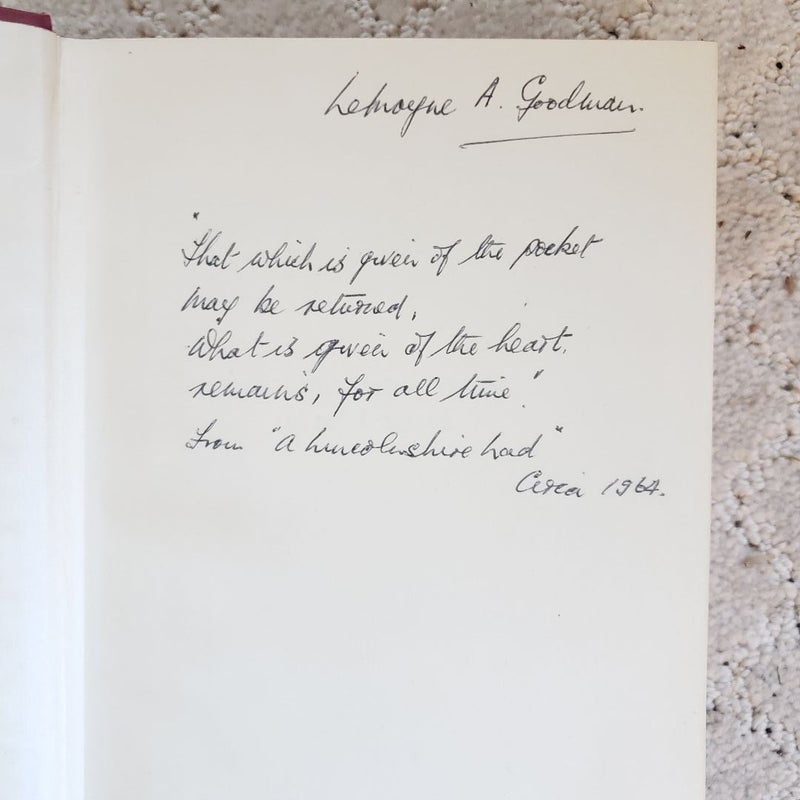 Lemoyne A. Goodman.
"That which is given of the pocket
may be returned,
What is given of the heart.
remains, for all time".
From "A Lincolnshire Lad"
Circa 1964.